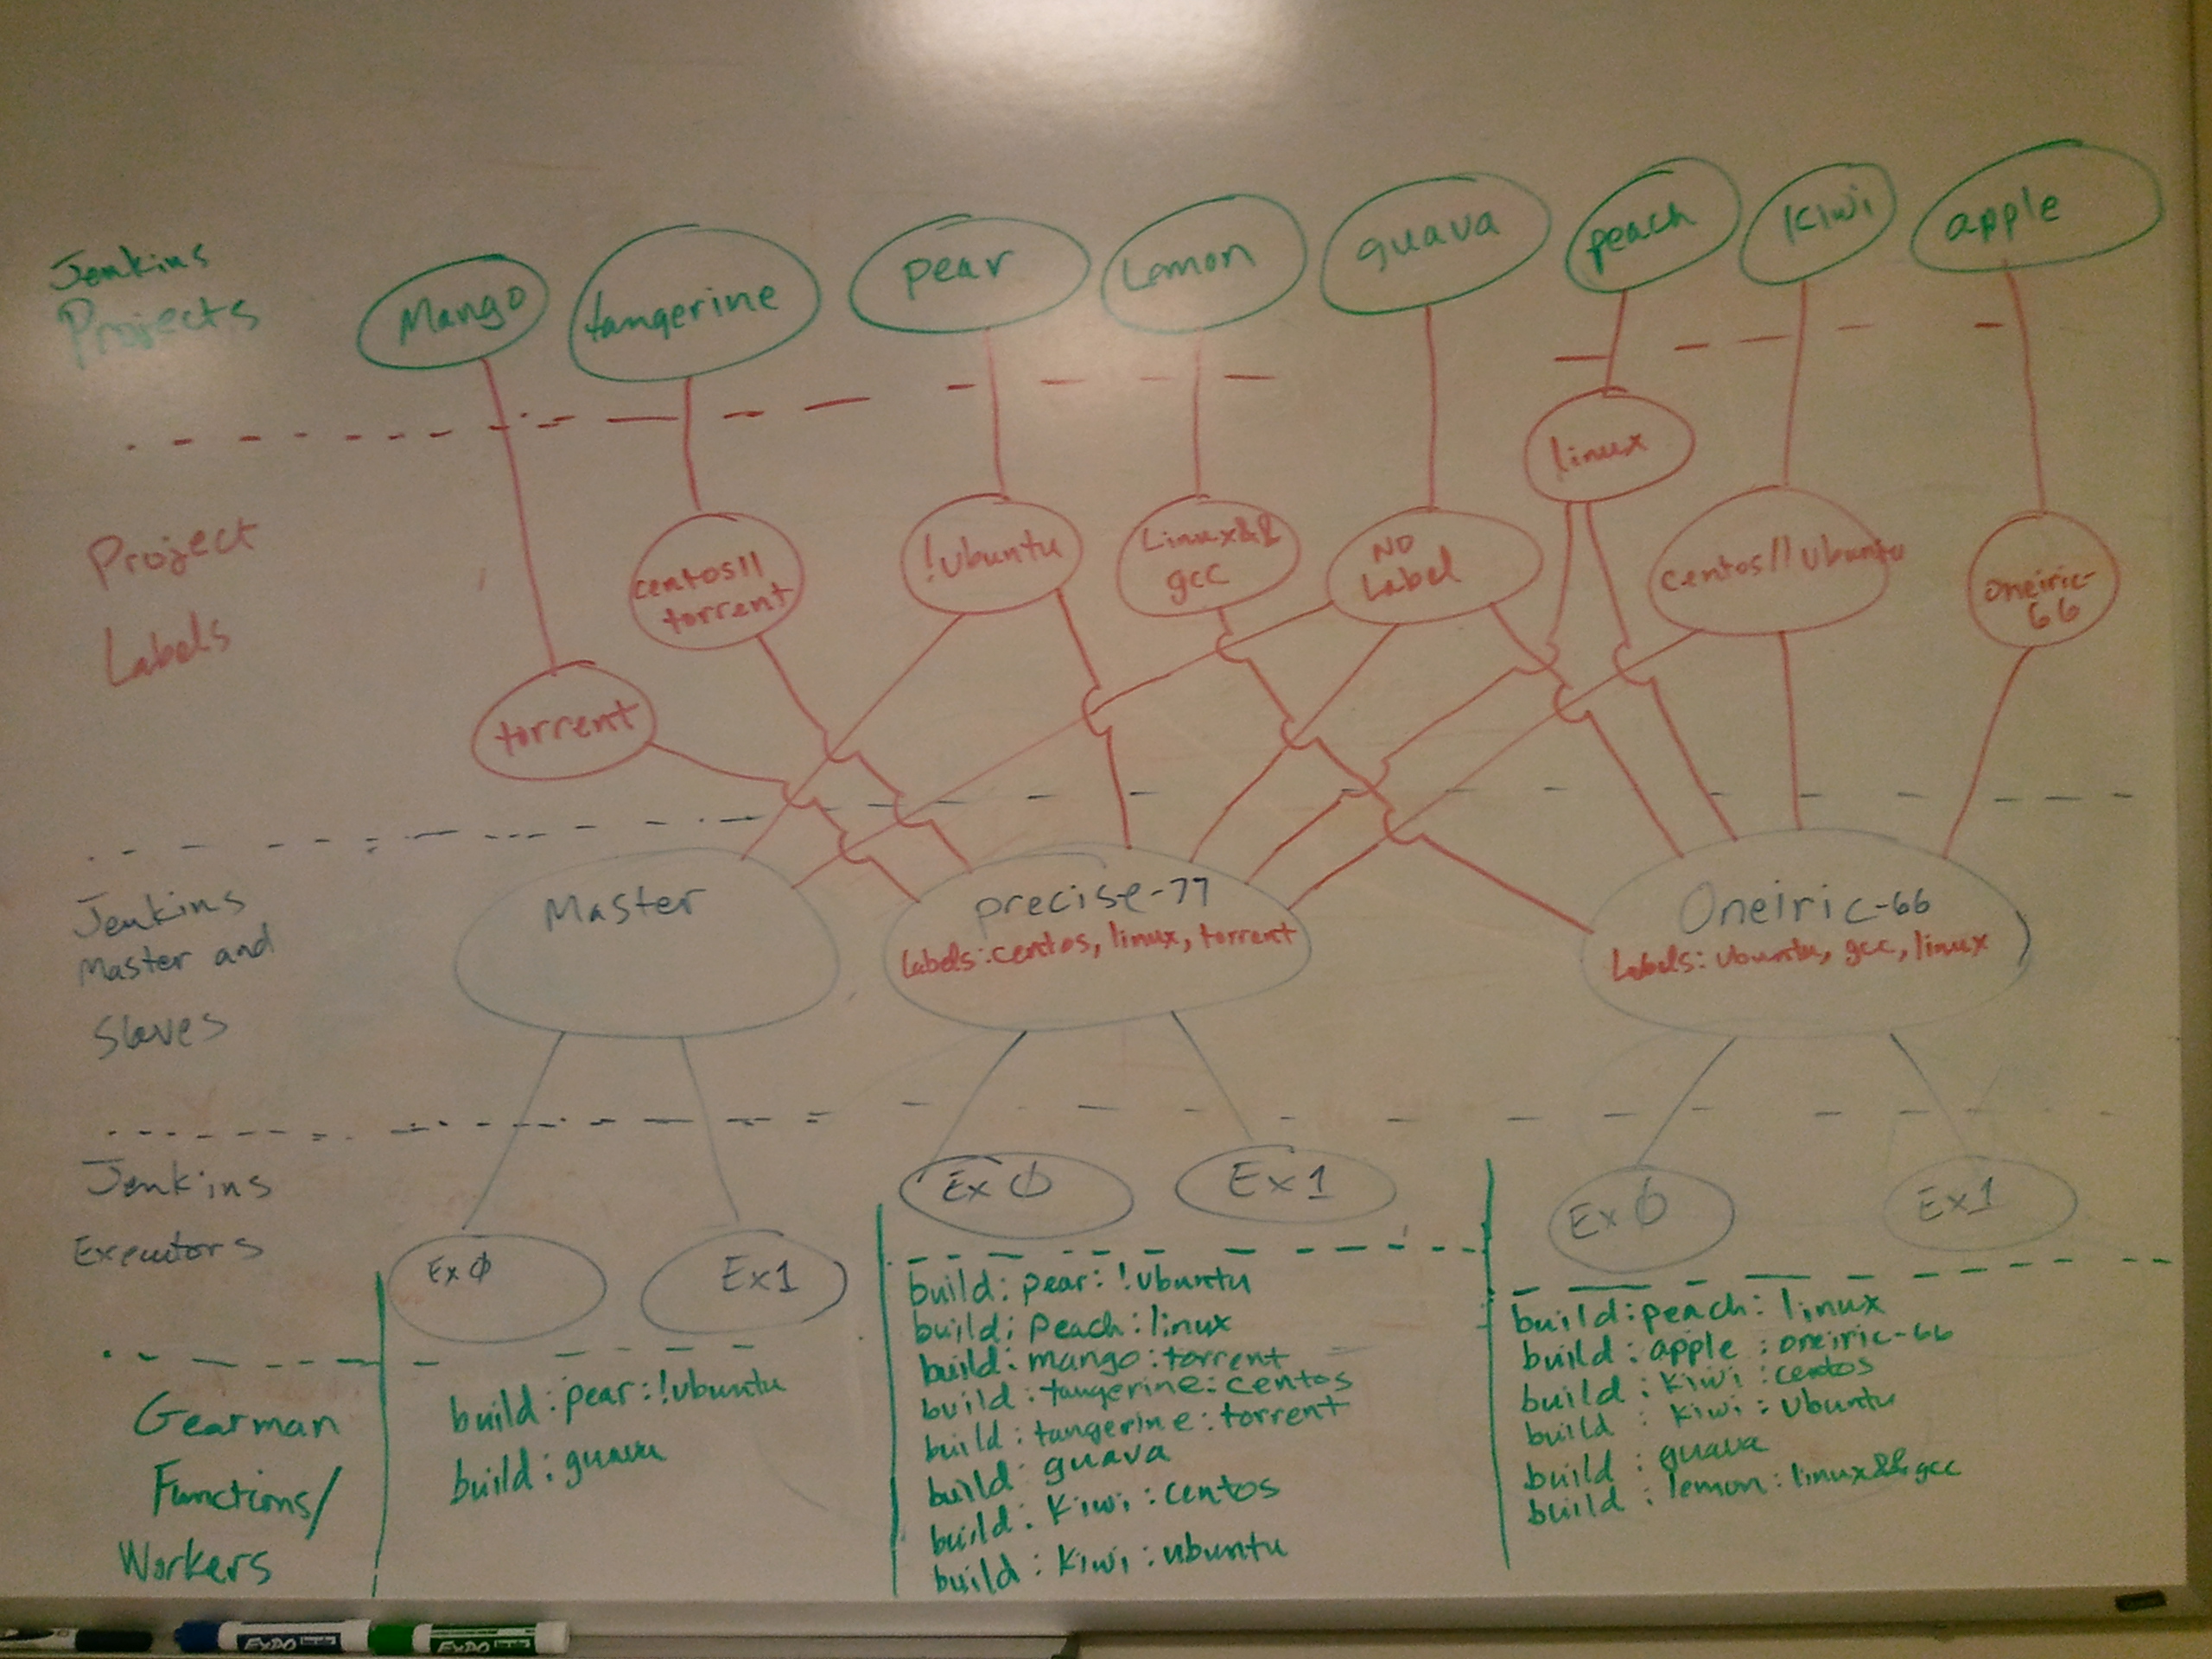 Jenkins
Projects
Mango
tangerine
pear
Lemon
guava
peach
Kiwi
apple
Project
Labels
torrent
centos||
torrent
!ubuntu
Linux&&
gcc
NO
Label
linux
centos||ubuntu
oneiric-
66
Jenkins
Master and
Slaves
Master
precise-77
labels:centos, linux, torrent
Oneiric-66
Labels: ubuntu, gcc, linux
Jenkins
Executors
Ex0
Ex1
Ex0
Ex1
Ex0
Ex1
Gearman
Functions/
Workers
build:pear:!ubuntu
build:guava
build:pear:!ubuntu
build:Peach:linux
build:mango:torrent
build:tangerine:centos
build:tangerine:torrent
build:guava
build:Kiwi:centos
build:Kiwi:ubuntu
build:peach:linux
build:apple:oneiric-66
build:Kiwi:centos
build:Kiwi:Ubuntu
build:guava
build:lemon:linux&&gcc
EXPO
EXPO